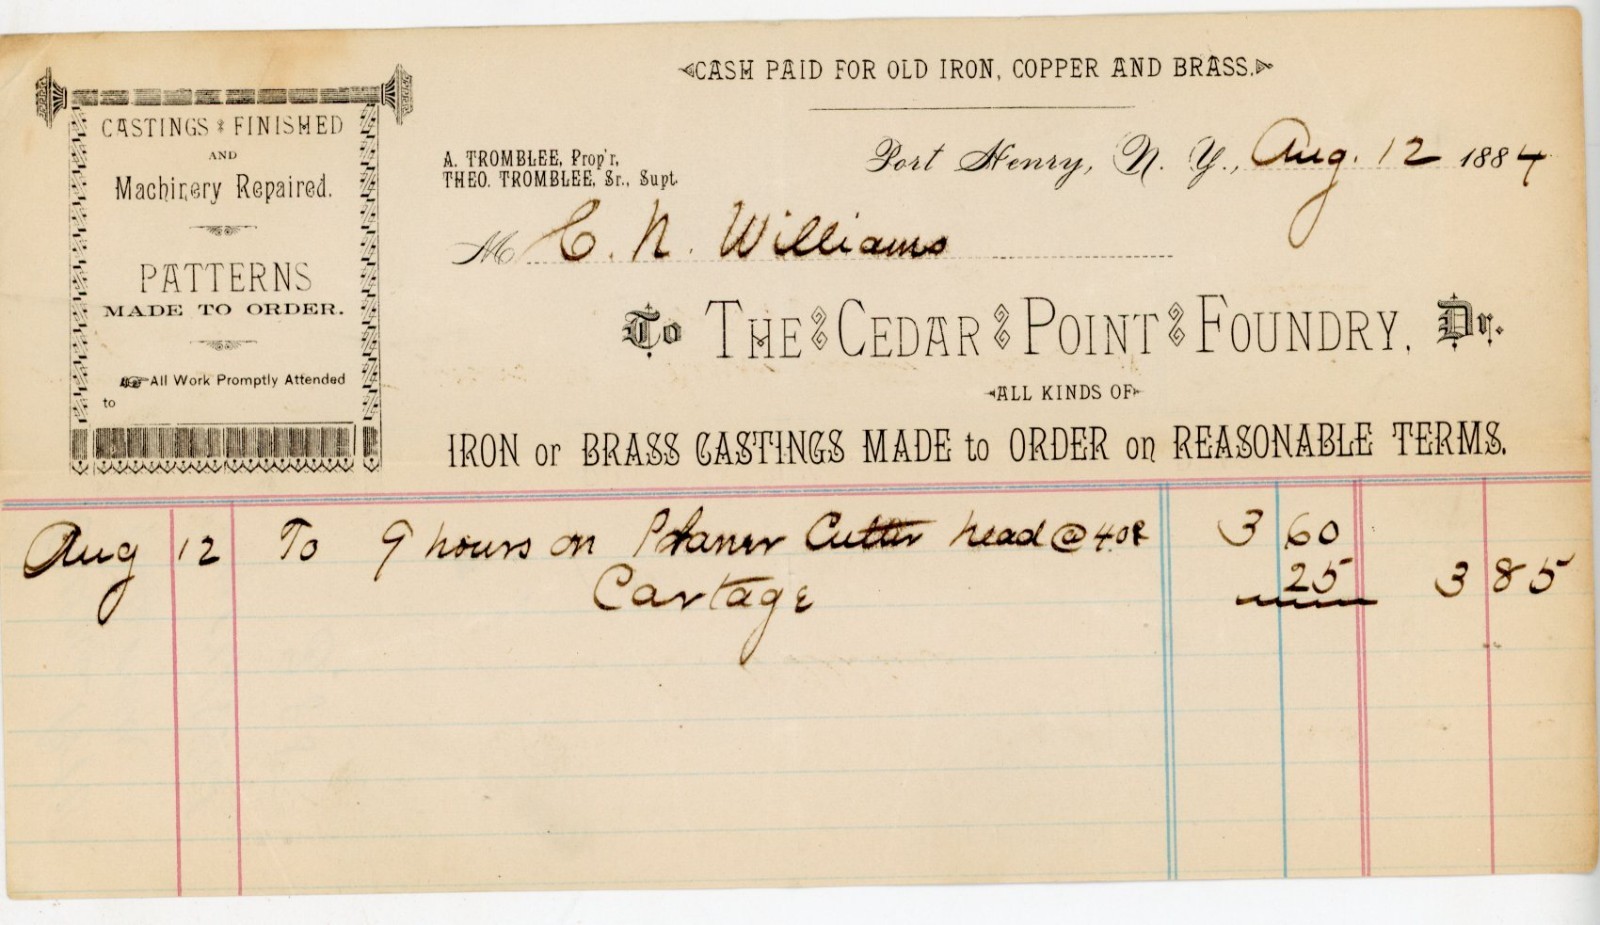 CASH PAID FOR OLD IRON, COPPER AND BRASS.
CASTINGS FINISHED
AND
Machinery Repaired.
PATTERNS
MADE TO ORDER.
All Work Promptly Attended
to
A. TROMBLEE, Prop'r,
THEO. TROMBLEE, Sr., Supt.
Port Henry, N. Y., Aug. 12 1884
M C. N. Williams
To THE CEDAR POINT FOUNDRY, Dr.
ALL KINDS OF
IRON or BRASS CASTINGS MADE to ORDER on REASONABLE TERMS.
Aug 12 To 9 hours on Planer Cutter head @ 40¢ 3 60
Cartage 25 3 85